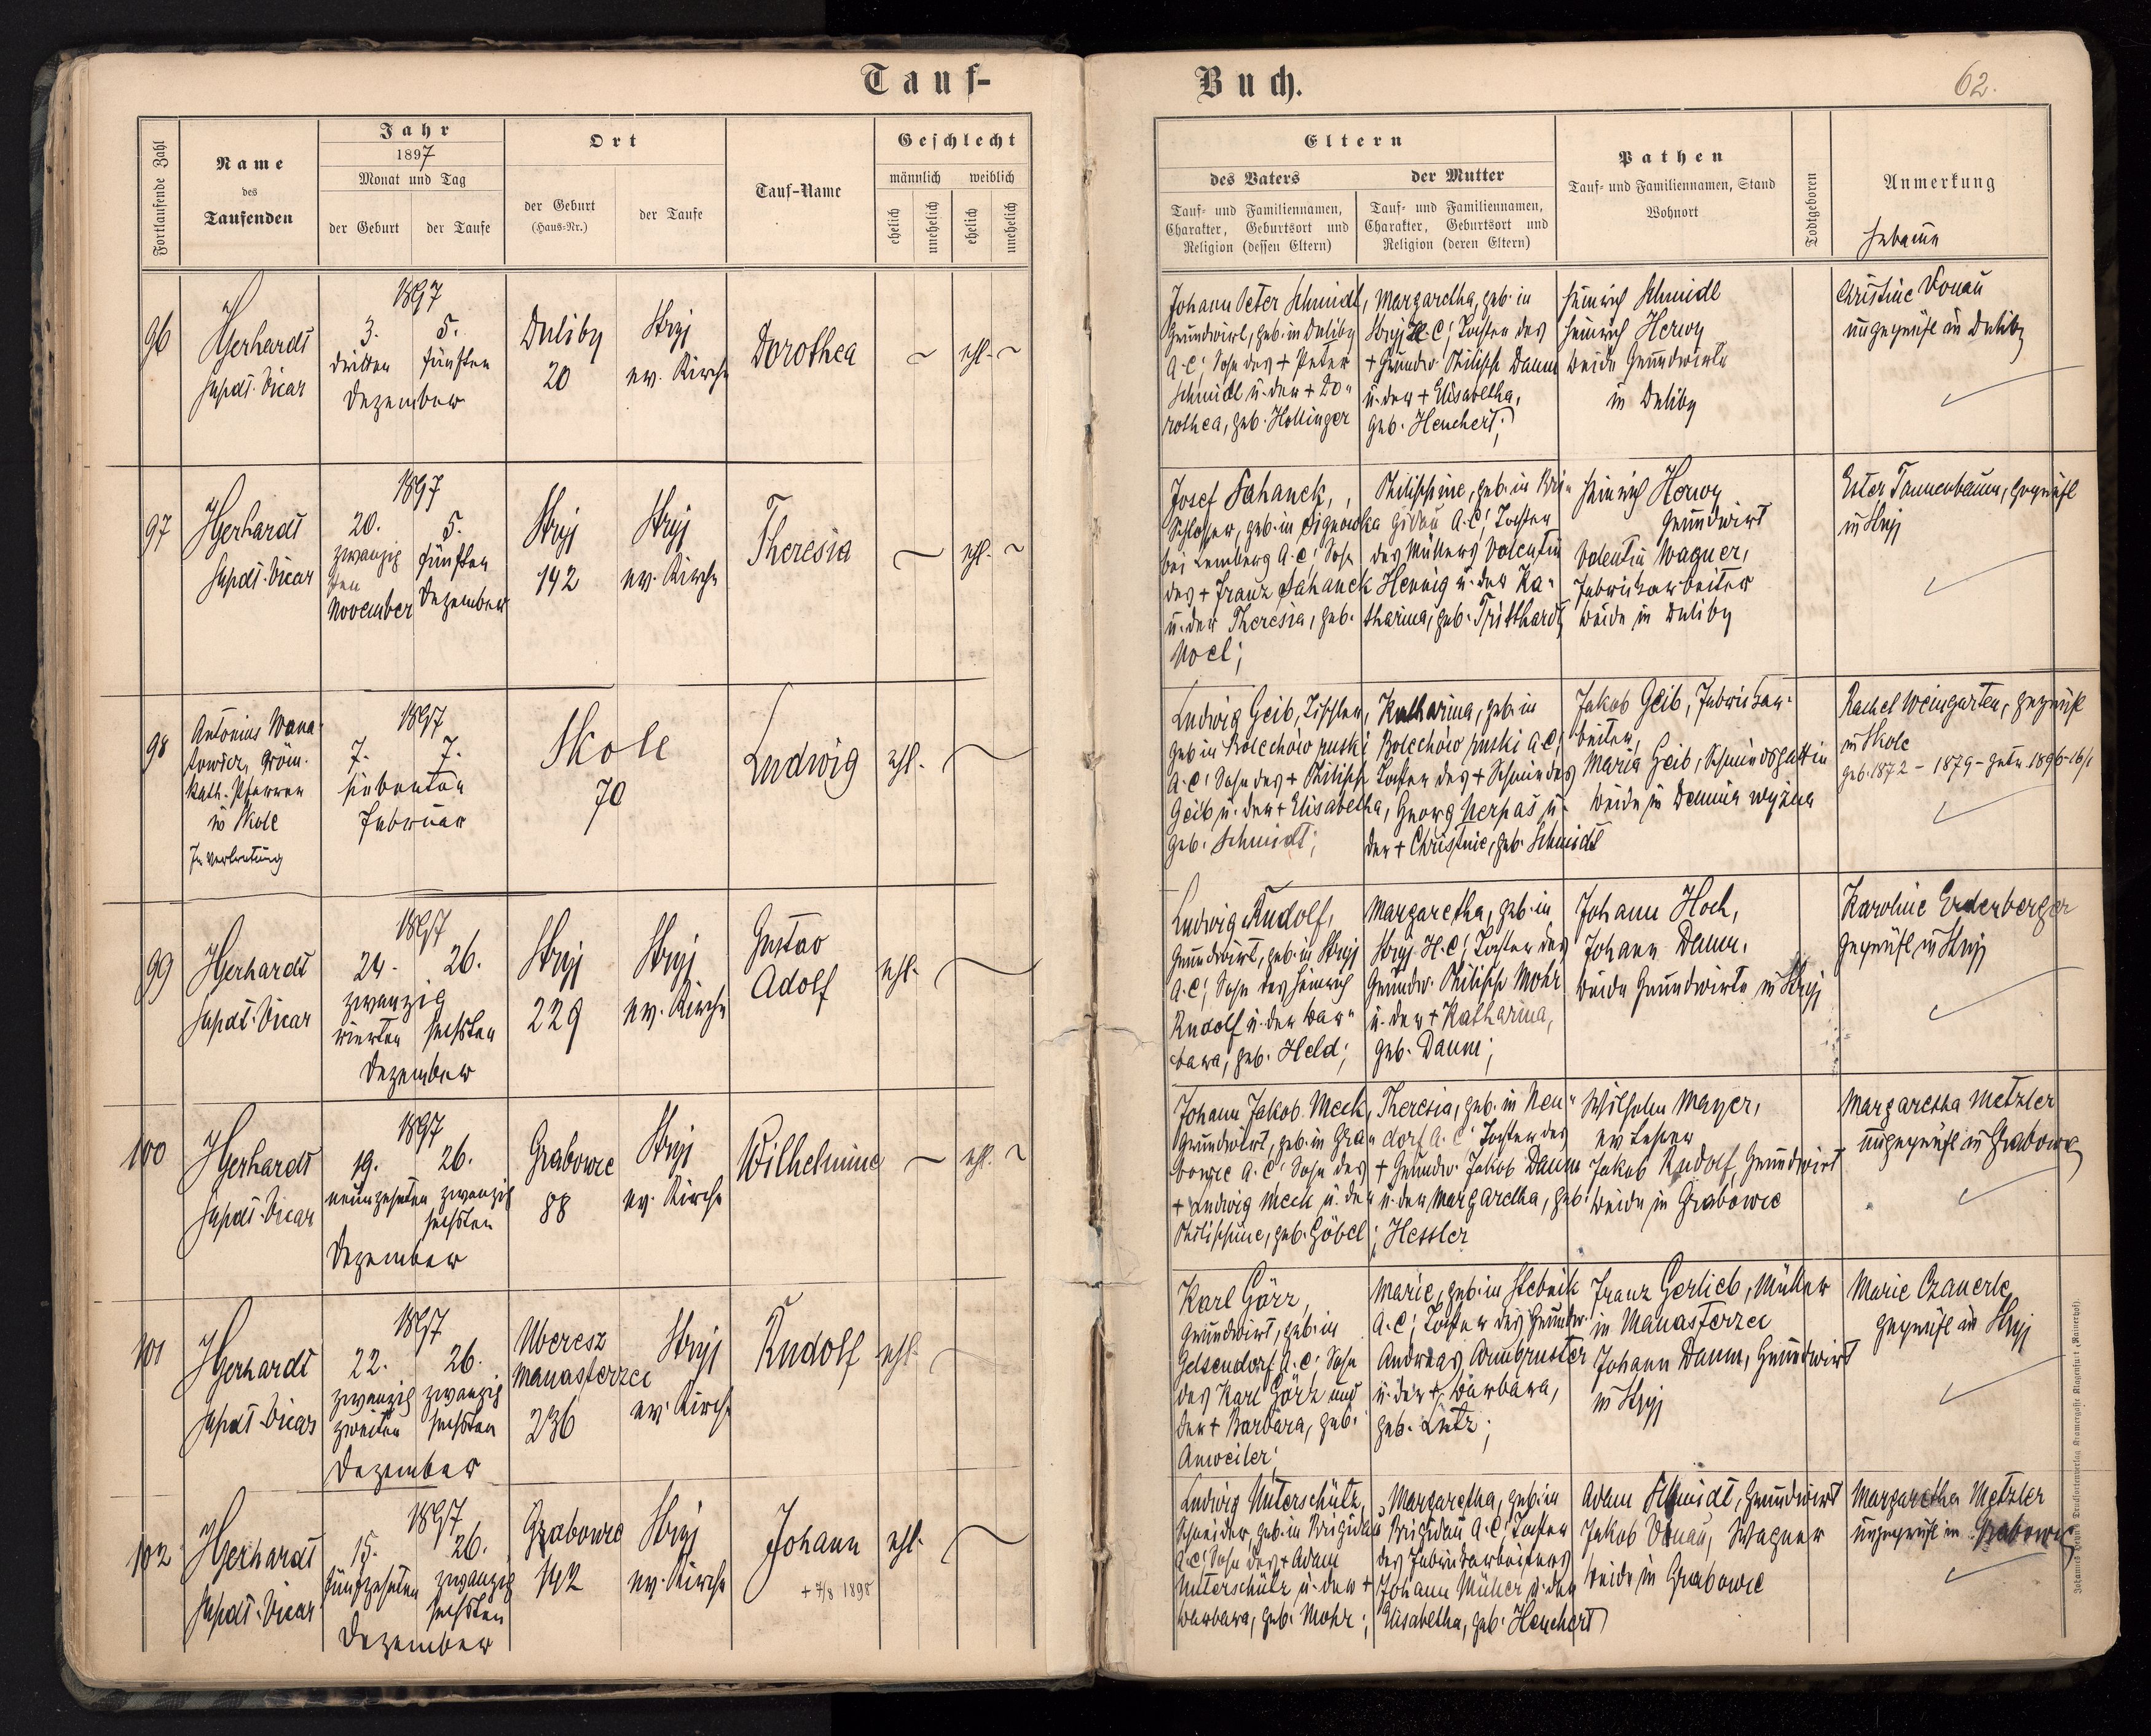 Tauf-
Buch.
62.
Fortlaufende Zahl
Name
des
Taufenden
Jahr
1897
Monat und Tag
der Geburt
der Taufe
Ort
der Geburt
(Haus-Nr.)
der Taufe
Tauf-Name
Geschlecht
männlich
weiblich
ehelich
unehelich
ehelich
unehelich
Eltern
des Vaters
der Mutter
Tauf- und Familiennamen,
Charakter, Geburtsort und
Religion (dessen Eltern)
Tauf- und Familiennamen,
Charakter, Geburtsort und
Religion (deren Eltern)
Pathen
Tauf- und Familiennamen, Stand
Wohnort
Todtgeboren
Anmerkung
Hebamme
96
Gerhardt
Supdt. Vicar
1897
3.
5.
dritten
fünften
Dezember
Duliby
20
Stryj
ev. Kirche
Dorothea
ehl.
Johann Peter Schmidt,
Grundwirt, geb. in Duliby
A.C; Sohn des + Peter
Schmidt u. der + Do-
rothea, geb. Hollinger
Margaretha, geb. in
Stryj H.C; Tochter des
+ Grundw. Philipp Daum
u. der + Elisabetha,
geb. Henchert;
Heinrich Schmidt
Heinrich Herwy
beide Grundwirte
in Duliby
Christine Donau
ungeprüft in Duliby
97
Gerhardt
Supdt. Vicar
1897
20.
5.
zwanzig
sten
November
fünften
Dezember
Stryj
142
Stryj
ev. Kirche
Theresia
ehl.
Josef Sahanek,
Schlosser, geb. in Sigowka
bei Lemberg A.C; Sohn
des + Franz Sahanek
u. der Theresia, geb.
Noel;
Philippine, geb. in Bri-
gidau A.C; Tochter
des Müllers Valentin
Hennig u. der Ka-
tharina, geb. Tritthardt
Heinrich Herwy
Grundwirt
Valentin Wagner,
Fabriksarbeiter
beide in Duliby
Ester Tannenbaum, geprüft
in Stryj
98
Antonius Wana-
towicz, gröm.
kath. Pfarrer
in Skole
In Vertretung
1897
7.
7.
siebenten
Februar
Skole
70
Ludwig
ehl.
Ludwig Geib, Tischler,
geb. in Bolechów ruski
A.C; Sohn des + Philipp
Geib u. der + Elisabetha,
geb. Schmidt;
Katharina, geb. in
Bolechów ruski A.C;
Tochter des + Schmiedes
Georg Nerpas u.
der + Christine, geb. Schmidt
Jakob Geib, Fabriksar-
beiter,
Maria Geib, Schmiedsgattin
beide in Demnia wyżna
Rachel Weingarten, geprüft
in Skole
geb. 1872 - 1879 - getr. 1896-16/1
99
Gerhardt
Supdt. Vicar
1897
24.
26.
zwanzig
vierten
sechsten
Dezember
Stryj
229
Stryj
ev. Kirche
Gustav
Adolf
ehl.
Ludwig Rudolf,
Grundwirt, geb. in Stryj
A.C; Sohn des Heinrich
Rudolf u. der Bar-
bara, geb. Held;
Margaretha, geb. in
Stryj H.C; Tochter des
Grundw. Philipp Mohr
u. der + Katharina,
geb. Daum;
Johann Hoch,
Johann Daum,
beide Grundwirte in Stryj
Karoline Erdenberger
geprüft in Stryj
100
Gerhardt
Supdt. Vicar
1897
19.
26.
neunzehnten
zwanzig
sechsten
Dezember
Grabowce
88
Stryj
ev. Kirche
Wilhelmine
ehl.
Johann Jakob Meck,
Grundwirt, geb. in Gra-
bowce A.C; Sohn des
+ Ludwig Meck u. der
Philippine, geb. Göbel;
Theresia, geb. in Neu-
dorf A.C; Tochter des
+ Grundw. Jakob Daum
u. der Margaretha, geb.
Hessler
Wilhelm Mayer,
ev. Lehrer
Jakob Rudolf, Grundwirt
beide in Grabowce
Margaretha Metzler
ungeprüft in Grabowce
101
Gerhardt
Supdt. Vicar
1897
22.
26.
zwanzig
zweiten
zwanzig
sechsten
Dezember
Uberesz
Manasterzec
236
Stryj
ev. Kirche
Rudolf
ehl.
Karl Görz,
Grundwirt, geb. in
Gelsendorf A.C; Sohn
des Karl Görz und
der + Barbara, geb.
Anweiler;
Marie, geb. in Stebnik
A.C; Tochter des Grundw.
Andreas Armbruster
u. der + Barbara,
geb. Lutz;
Franz Gerlieb, Müller
in Manasterzec
Johann Daum, Grundwirt
in Stryj
Marie Czauerle
geprüft in Stryj
102
Gerhardt
Supdt. Vicar
1897
15.
26.
fünfzehnten
zwanzig
sechsten
Dezember
Grabowce
142
Stryj
ev. Kirche
Johann
+ 7/8 1898
ehl.
Ludwig Unterschütz,
Schneider, geb. in Brigidau
A.C; Sohn des + Adam
Unterschütz u. der +
Barbara, geb. Mohr;
Margaretha, geb. in
Brigidau A.C; Tochter
des Fabriksarbeiters
Johann Müller u. der
Elisabetha, geb. Henchert
Adam Schmidt, Grundwirt
Jakob Donau, Wagner
beide in Grabowce
Margaretha Metzler
ungeprüft in Grabowce